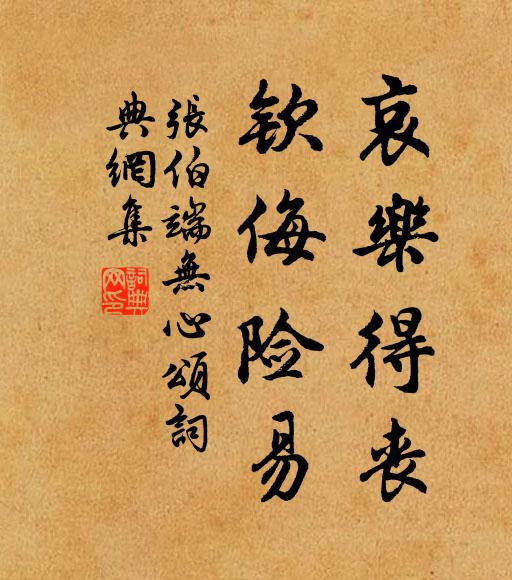 哀樂得喪
欽侮险易
張伯端無心頌詞
典網集
詞典網印